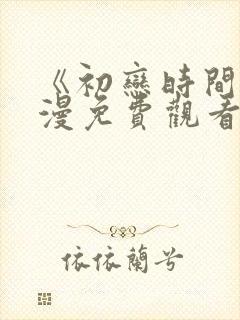 《初戀時間
漫免費觀看
依依蘭兮